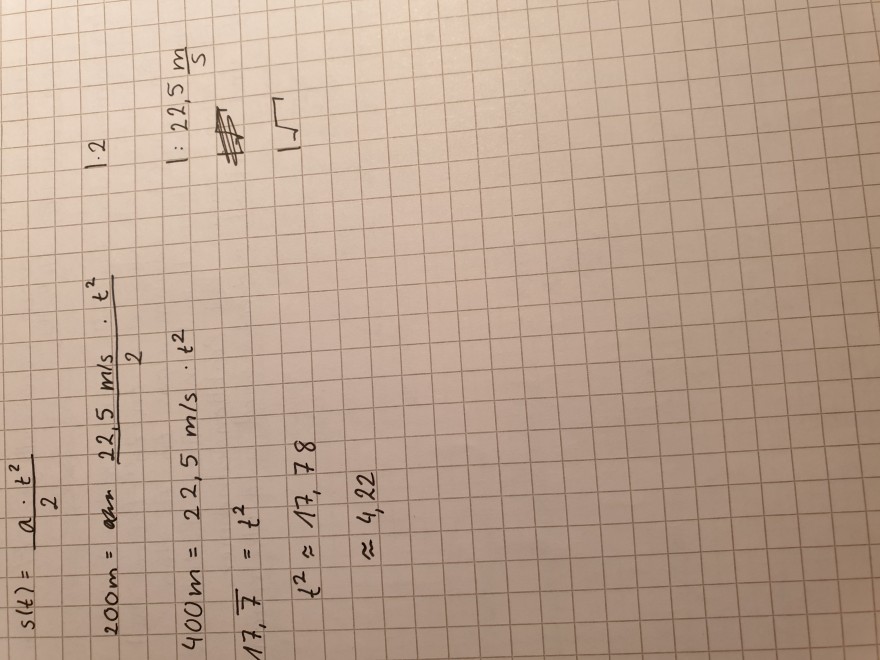 s(t) = a · t² / 2
200m = 22,5 m/s · t² / 2 | · 2
400m = 22,5 m/s · t² | : 22,5 m/s
17,7̅ = t²
t² ≈ 17,78 | √
≈ 4,22